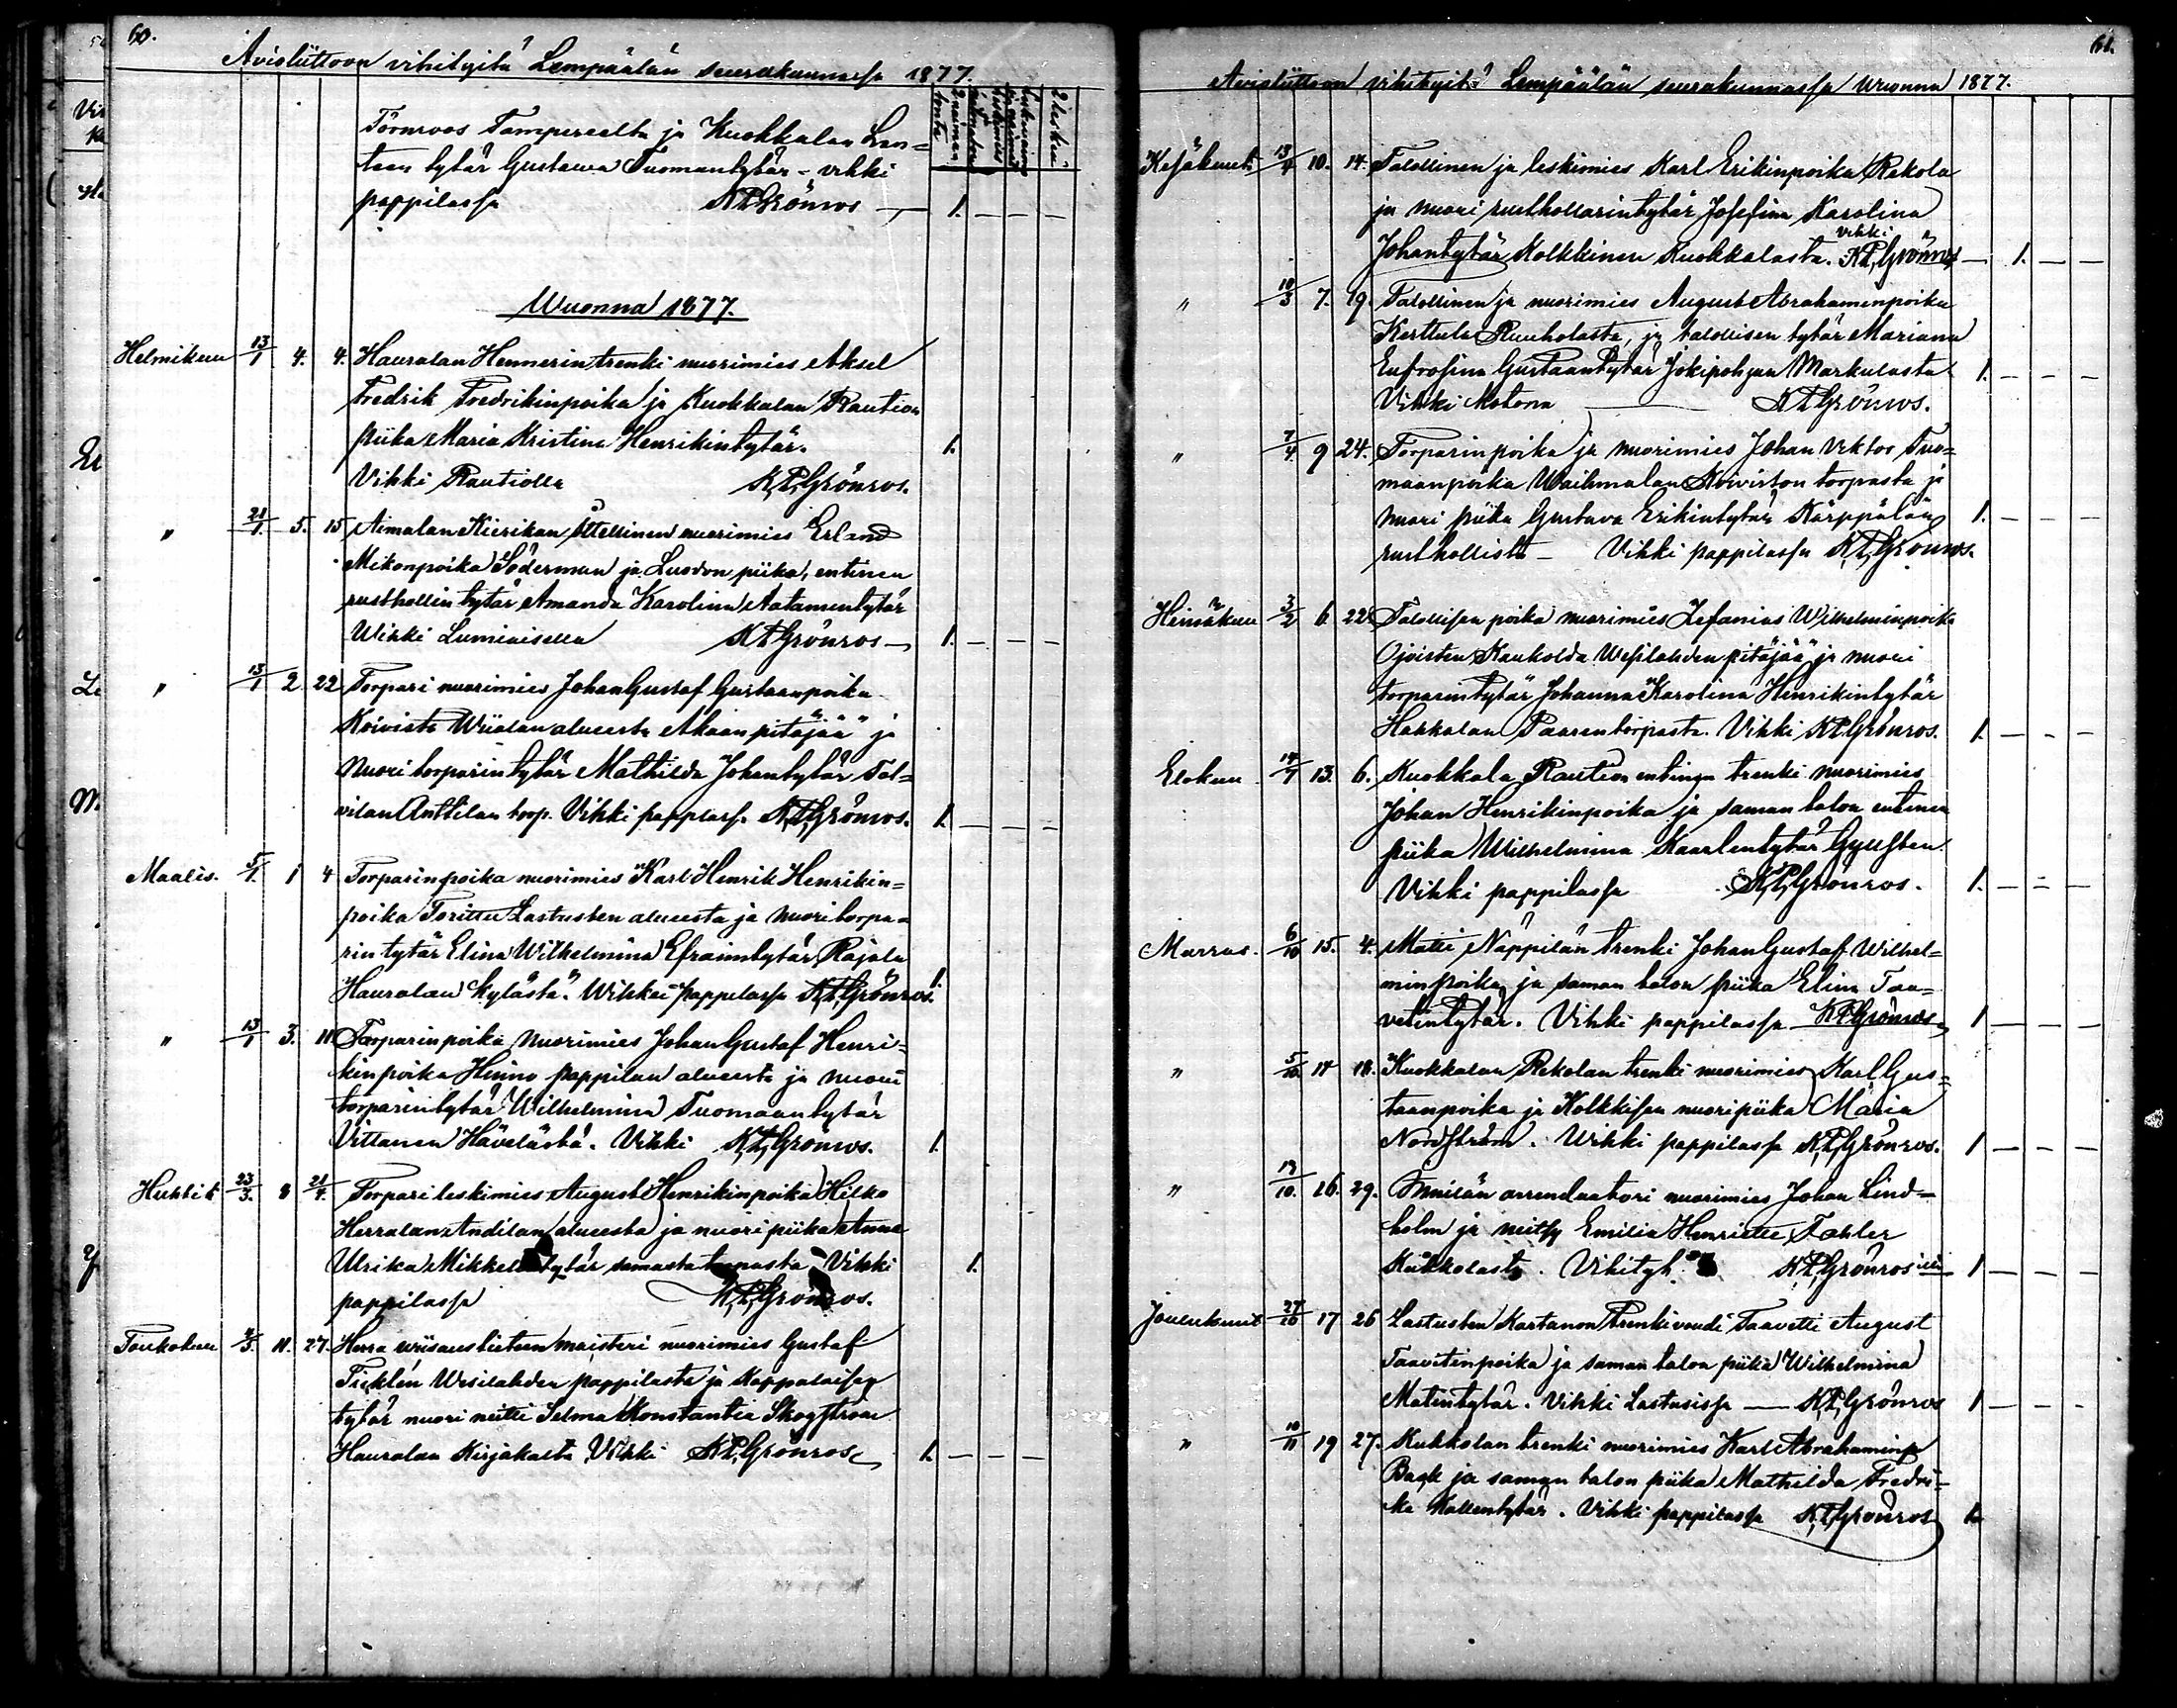 60.
Avioliittoon vihityitä Lempäälän seurakunnassa 1877.
Törnroos Tampereelta ja Kuokkalan
teen tytär Gustawa Tuomantytär - vihki
pappilassa KPGrönros — 1. — — —
Wuonna 1877.
Helmikuu 13/1 4. 4. Hauralan Hemmerin trenki nuorimies Aksel
Fredrik Fredrikinpoika ja Kuokkalan Raution
piika Maria Kristina Henrikintytär. 1.
Vihki Rautiolla KPGrönros.
" 21/1. 5. 15 Aimalan Kierikan itsellinen nuorimies Erland
Mikonpoika Söderman ja Luodon piika, entinen
rusthollin tytär Amanda Karolina Aatamentytär
Wihki Lumiaisella KPGrönros — 1. — — —
" 13/1 2 22 Torpari nuorimies Johan Gustaf Gustaanpoika
Koivisto Wiialan alueesta Akaan pitäjää ja
Nuori torparin tytär Mathilda Johantytär
Anttilan torp. Vihki pappilassa KPGrönros. 1. — — —
Maalis. 5/1. 1 4 Torparinpoika nuorimies Karl Henrik Henrikin=
poika Torittu Lastusten alueesta ja Nuori torpa=
rin tytär Elina Wilhelmina Efraimtytär Rajala
Hauralan kylästä. Wihki pappilassa KPGrönros. 1.
" 13/1 3. 11 Torparinpoika Nuorimies Johan Gustaf Henri=
kinpoika Heino pappilan alueesta ja nuori
torparintytär Wilhelmina Tuomaantytär
Vittanen Hävelästä. Vihki KPGrönros. 1.
Huhtik 23/3. 8 21/4. Torpari leskimies August Henrikinpoika Hilko
Herralan Andilan alueesta ja nuori piika Anna
Ulrika Mikkelintytär samasta torpasta Vihki 1.
pappilassa KPGrönros.
Toukokuu 11. 27. Herra wiisaustieteen maisteri nuorimies Gustaf
Ticklén Wesilahden pappilasta ja Kappalaisen
tytär nuori neiti Selma Konstantia Skogström
Hauralan Kirjakasta Vihki KPGrönros 1. — — —
61.
Avioliittoon vihityitä Lempäälän seurakunnassa Wuonna 1877.
Kesäkuuta 13/4 10. 14. Talollinen ja leskimies Karl Erikinpoika Rekola
ja nuori rusthollarintytär Josefina Karolina
vihki
Johantytär Kolkkinen Kuokkalasta. KPGrönros — 1. — —
" 10/3 7. 19. Talollinen ja nuorimies August Abrahaminpoika
Kerttula Ruuholasta, ja talollisen tytär Mariana
Eufrosina Gustaantytär Jokipohjan Markulasta 1. — — —
Vihki Kotona — KPGrönros.
" 7/4 9 24. Torparinpoika ja nuorimies Johan Viktor Tuo=
maanpoika Waihmalan Koiviston torpasta ja
nuori piika Gustava Erikintytär Kärppälän 1. — — —
rusthollista — Vihki pappilassa KPGrönros.
Heinäkuu 3/2 6 22 Talollisen poika nuorimies Zefanias Wilhelminpoika
Ojoisten Kauholda Wesilahden pitäjää ja nuori
torparintytär Johanna Karolina Henrikintytär
Hakkalan Paaren torpasta. Vihki KPGrönros. 1. — — —
Elokuu 14/7 13. 6. Kuokkala Raution entinen trenki nuorimies
Johan Henrikinpoika ja saman talon entinen
piika Wilhelmina Kaarlentytär Gyllsten
Vihki pappilassa KPGrönros. 1. — — —
Marras. 6/10 15. 4. Matti Näppilän trenki Johan Gustaf Wilhel=
minpoika ja saman talon piika Elina Taa=
vetintytär. Vihki pappilassa KPGrönros 1 — — —
" 5/10 14 18. Kuokkalan Rekolan trenki nuorimies Karl Gus=
taanpoika ja Kolkkisen nuori piika Maria
Nordström. Wihki pappilassa KPGrönros. 1 — — —
" 13/10. 16. 29. arrendaatori nuorimies Johan Lind=
holm ja neitsy Emilia Henriette Fahler
Kukkolasta. Vihityt KPGrönros 1 — — —
Joulukuut 27/10 17 26 Lastusten Kartanon Trenkivouti Taavetti August
Taavetinpoika ja saman talon piika Wilhelmina
Matintytär. Vihki Lastusissa — KPGrönros 1 — — —
" 10/11 19 27. Kukkolan trenki nuorimies Karl Abrahaminp
Back ja saman talon piika Mathilda Fredri=
ka Kallentytär. Vihki pappilassa KPGrönros 1.